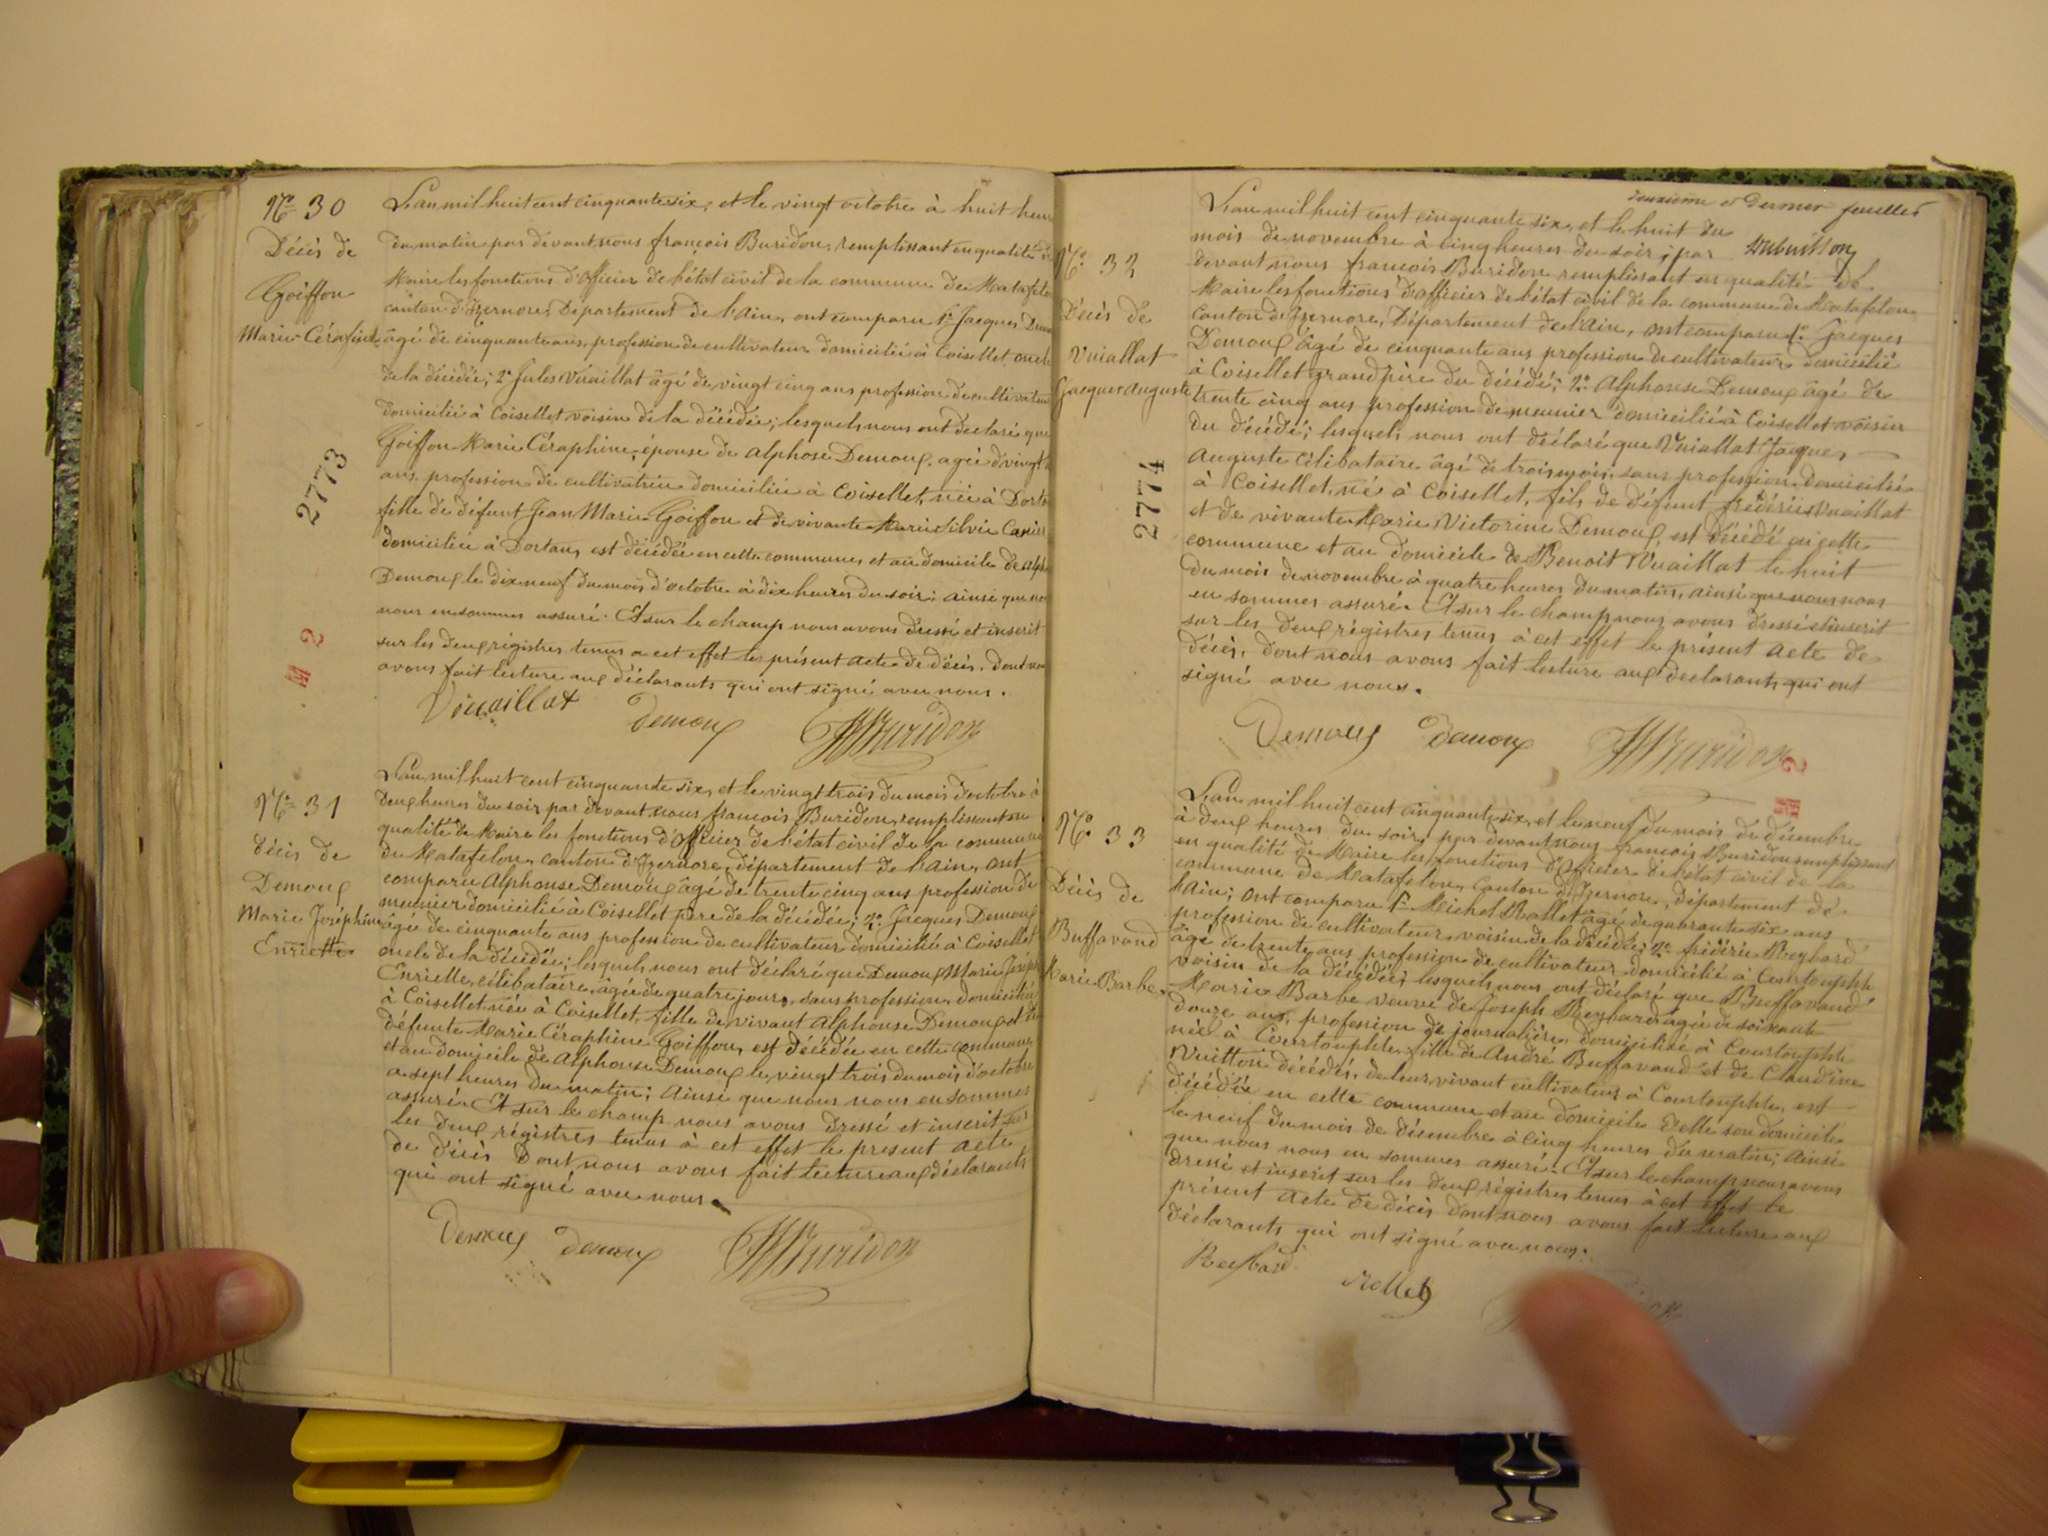 Nº 30
Décès de
Goiffon
Marie Cérafine
2773
L'an mil huit cent cinquante six, et le vingt octobre à huit heures
du matin par devant nous françois Buridon, remplissant en qualité de
Maire les fonctions d'officier de l'état civil de la commune de Matafelon
canton d'Izernore, Département de l'ain, ont comparu 1º Jacques
âgé de cinquante ans, profession de cultivateur domicilié à Coisellet oncle
de la décédée; 2º Jules Vuaillat âgé de vingt cinq ans profession de cultivateur
domicilié à Coisellet voisin de la décédée; lesquels nous ont declaré que
Goiffon Marie Céraphine, épouse de alphose Demoux, agée de vingt
ans, profession de cultivatrice domiciliée à Coisellet, née à Dortan
fille de défunt Jean Marie Goiffon et de vivante Marie Silvie
domiciliée à Dortan, est décédée en cette commune, et au domicile de
Demoux le dix neuf du mois d'octobre à dix heures du soir; ainsi que nous
nous en sommes assuré. Et sur le champ nous avons dressé et inscrit
sur les deux régistres tenus a cet effet le présent acte de décès. Dont nous
avons fait lecture aux déclarants qui ont signé avec nous.
Vuaillat Demoux Buridon
Nº 31
Décès de
Demoux
Marie Joséphine
Enriette
L'an mil huit cent cinquante six, et le vingt trois du mois d'octobre à
deux heures du soir par devant nous francois Buridon, remplissant en
qualité de Maire les fonctions d'officier de l'état civil de la commune
de Matafelon, canton d'Izernore, département de l'ain, ont
comparu Alphonse Demoux âgé de trente cinq ans profession de
meunier domicilié à Coisellet père de la décédée; 2º Jacques Demoux
âgé de cinquante ans profession de cultivateur domicilié à Coisellet
oncle de la décédée; lesquels nous ont déclaré que Demoux Marie Joséphine
Enriette, célibataire, âgée de quatre jours, sans profession, domiciliée
à Coisellet, née à Coisellet, fille de vivant Alphonse Demoux et de
défunte Marie Céraphine Goiffon, est décédée en cette commune
et au domicile de Alphonse Demoux le vingt trois du mois d'octobre
a sept heures du matin; ainsi que nous nous en sommes
assuré. Et sur le champ nous avons dressé et inscrit sur
les deux régistres tenus à cet effet le présent acte
de décès Dont nous avons fait lecture aux déclarants
qui ont signé avec nous.
Demoux Demoux Buridon
deuxième et dernier feuillet
Nº 32
Décès de
Vuiallat
Jacques auguste
2774
L'an mil huit cent cinquante six, et le huit du
mois de novembre à cinq heures du soir; par
devant nous francois Buridon remplissant en qualité de
Maire les fonctions d'officier de l'état civil de la commune de Matafelon
canton d'Izernore, Département de l'ain, ont comparu 1º Jacques
Demoux âgé de cinquante ans profession de cultivateur domicilié
à Coisellet grand père du décédé; 2º Alphonse Demoux âgé de
trente cinq ans profession de meunier domicilié à Coisellet voisin
du décédé; lesquels nous ont déclaré que Vuiallat Jacques
auguste célibataire âgé de trois mois, sans profession, domicilié
à Coisellet, né à Coisellet, fils de défunt frédéric Vuaillat
et de vivante Marie Victorine Demoux, est décédé en cette
commune et au domicile de Benoit Vuaillat le huit
du mois de novembre à quatre heures du matin, ainsi que nous nous
en sommes assuré. Et sur le champ nous avons dressé et inscrit
sur les deux régistres tenus à cet effet le présent acte de
décès, dont nous avons fait lecture aux declarants qui ont
signé avec nous.
Demoux Demoux Buridon
Nº 33
Décès de
Buffavand
Marie Barbe
L'an mil huit cent cinquante six, et le neuf du mois de décembre
à deux heures du soir, par devant nous françois Buridon remplissant
en qualité de Maire les fonctions d'officier de l'état civil de la
commune de Matafelon, canton d'Izernore, département de
l'ain; ont comparu 1º Michel Rollet âgé de quarante six ans
profession de cultivateur voisin de la décédée; 2º frédéric Reybard
âgé de trente ans profession de cultivateur domicilié à Courtouphle
voisin de la décédée; lesquels nous ont déclaré que Buffavand
Marie Barbe veuve de Joseph Reybard âgée de soixante
douze ans, profession de journalière, domiciliée à Courtouphle
née à Courtouphle fille de André Buffavand et de Claudine
Vuitton décédés, de leur vivant cultivateurs à Courtouphle, est
décédée en cette commune et au domicile d'elle son domicile
le neuf du mois de décembre à cinq heures du matin; ainsi
que nous nous en sommes assuré. Et sur le champ nous avons
dressé et inscrit sur les deux régistres tenus à cet effet le
présent acte de décès dont nous avons fait lecture aux
déclarants qui ont signé avec nous.
Reybard Rollet